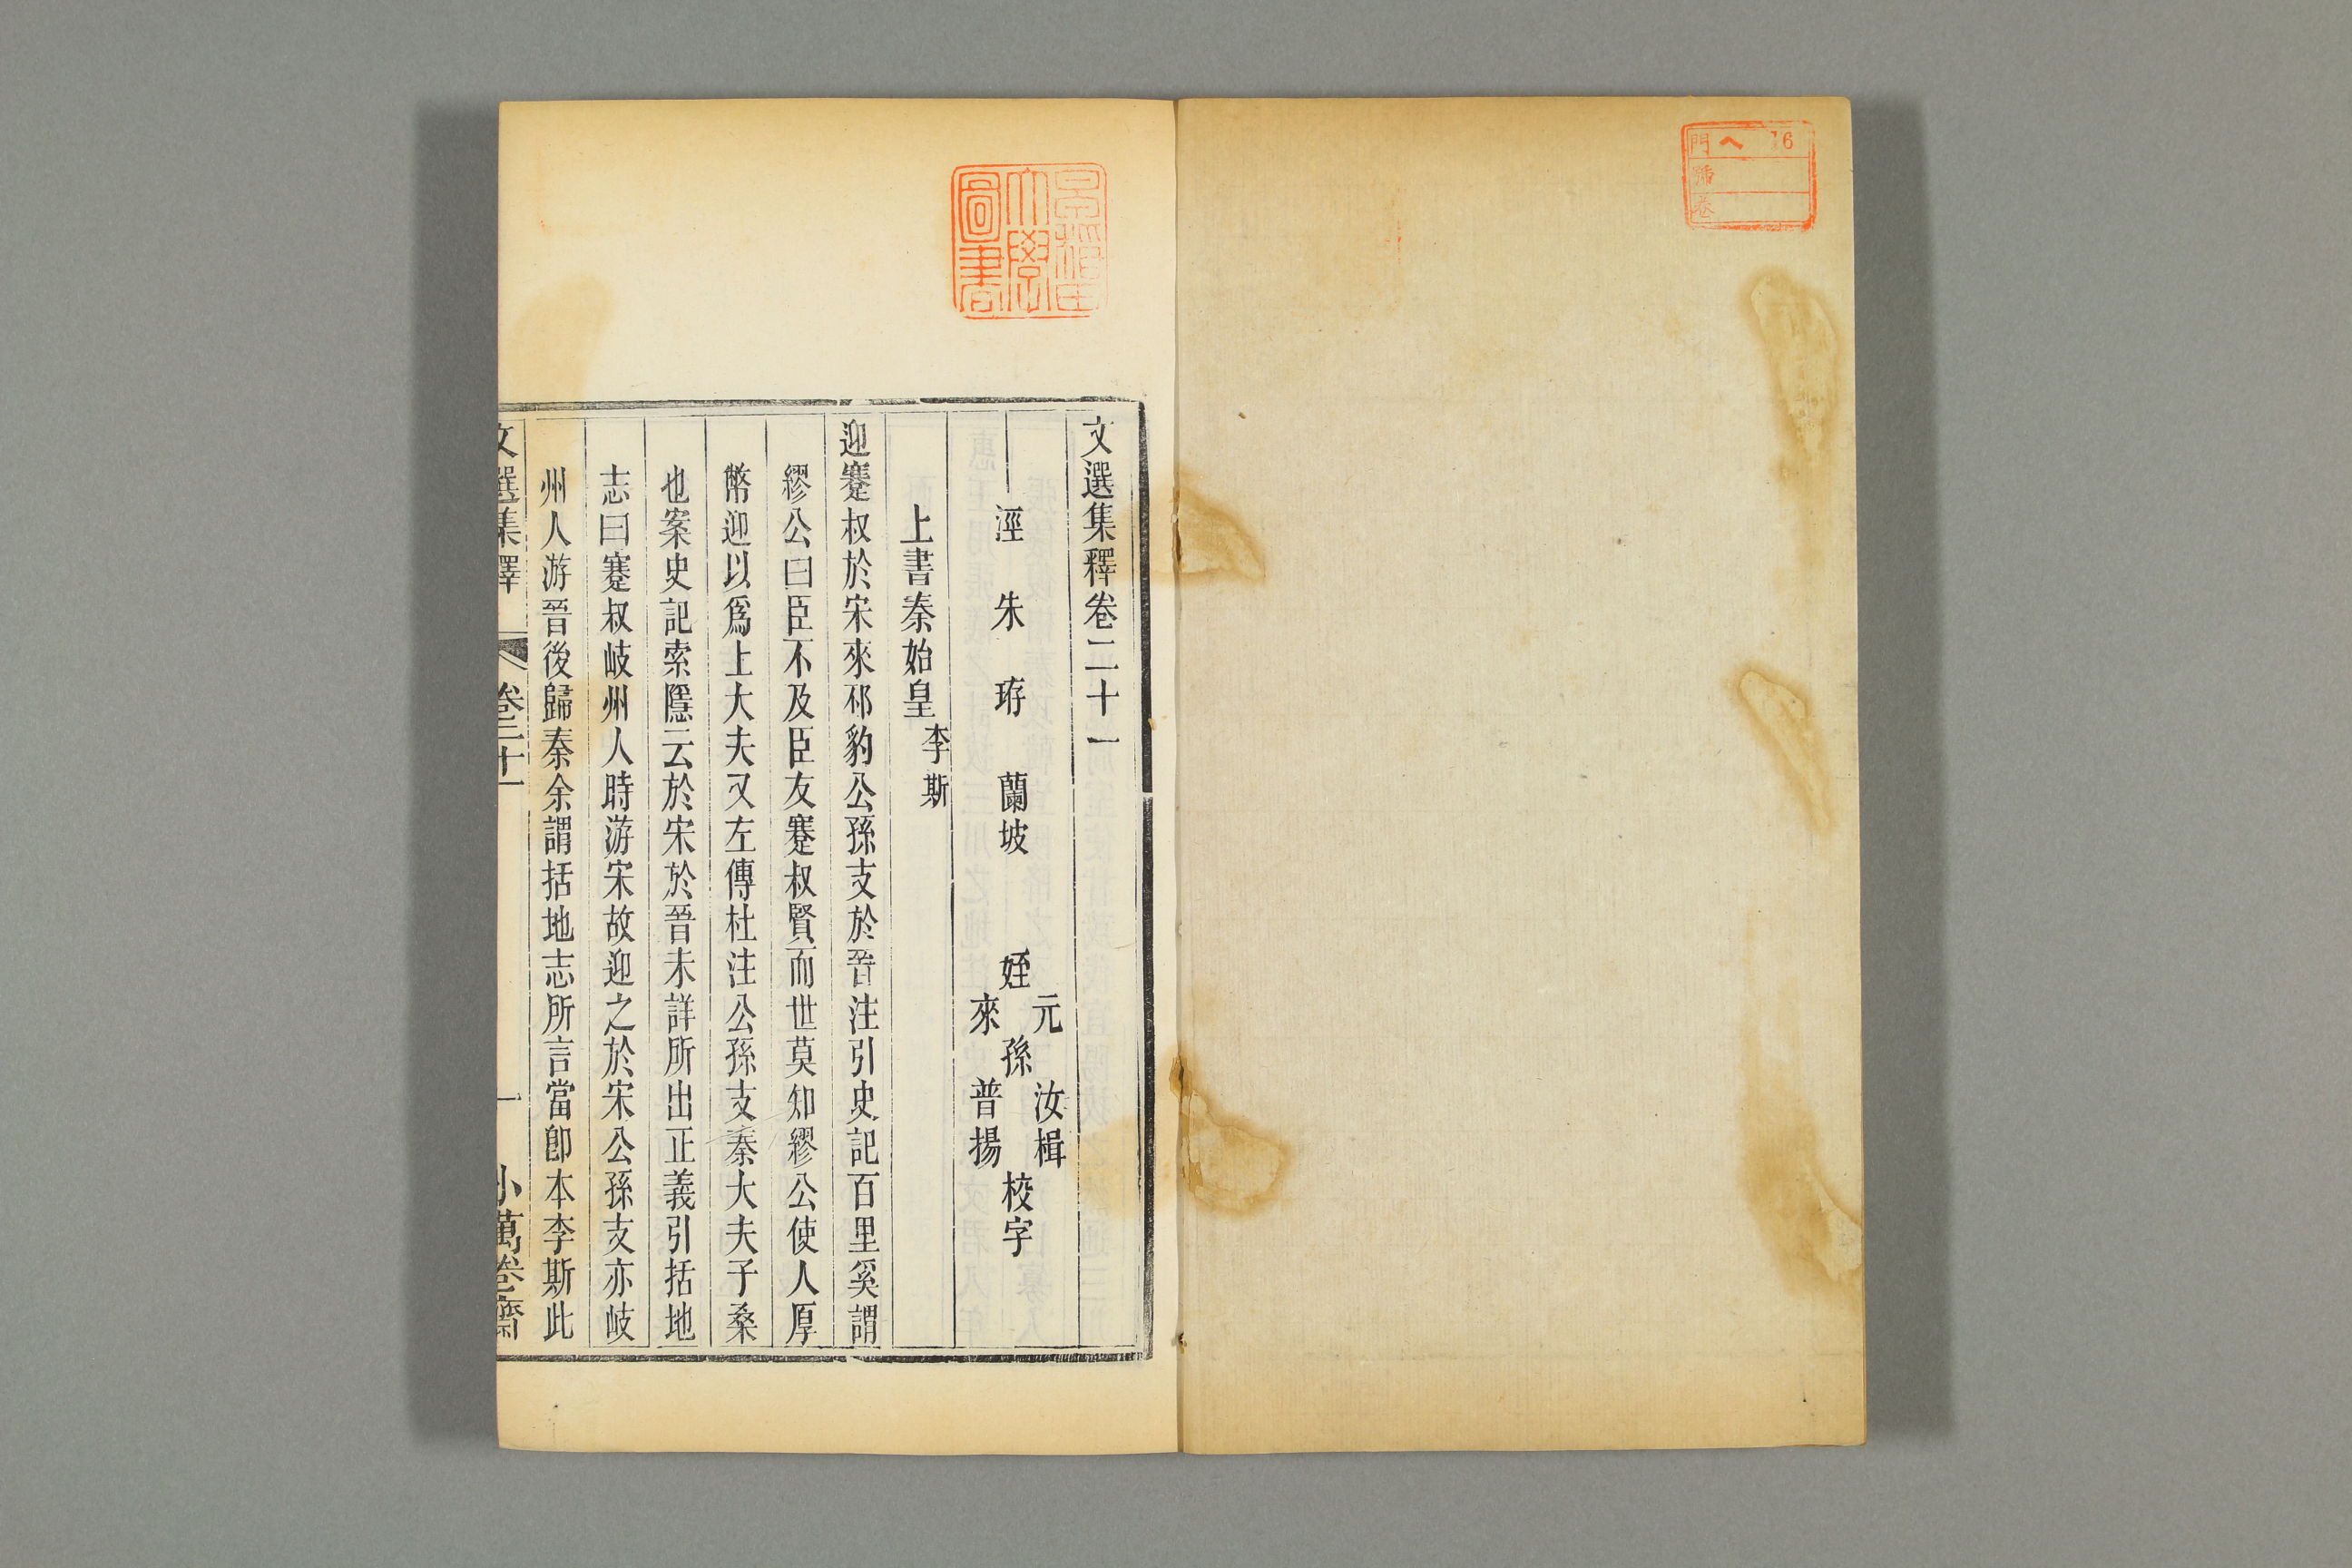 門 ヘ 16
號
卷
早稻田
大學
圖書
文選集釋卷二十一
涇 朱 珔 蘭坡 姪
元 汝楫
孫 校字
來 普揚
上書秦始皇 李斯
迎蹇叔於宋來邳豹公孫支於晉注引史記百里奚謂
繆公曰臣不及臣友蹇叔賢而世莫知繆公使人厚
幣迎以爲上大夫又左傳杜注公孫支秦大夫子桑
也案史記索隱云於宋於晉未詳所出正義引括地
志曰蹇叔岐州人時游宋故迎之於宋公孫支亦岐
州人游晉後歸秦余謂括地志所言當卽本李斯此
文選集釋 卷二十一 一 小萬卷齋